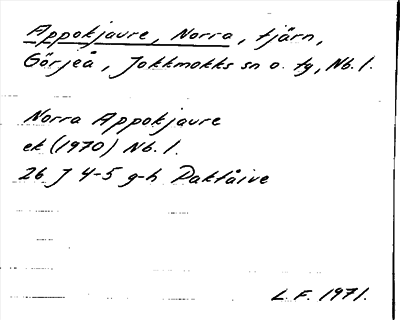 Appokjaure, Norra, tjärn,
Görjeå, Jokkmokks sn o. tg, Nb. l.
Norra Appokjaure
ek (1970) Nb. l.
26 J 4-5 g-h Daktåive
L. F. 1971.